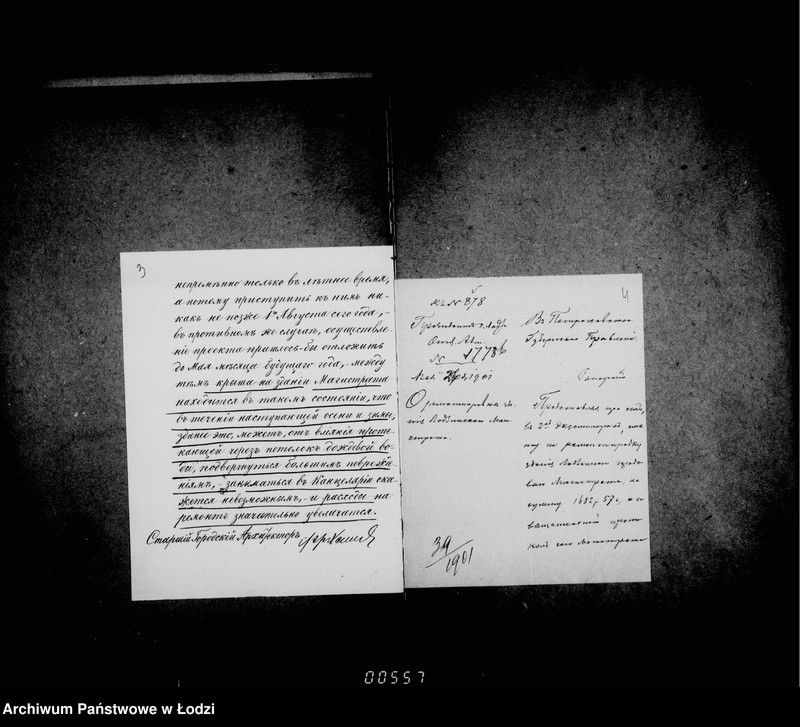 3
непремѣнно только въ лѣтнее время,
а потому приступить къ нимъ ни-
какъ не позже 1го Августа сего года,-
въ противномъ же случаѣ, осуществле-
ніе проекта пришлось-бы отложить
до Мая мѣсяца будущаго года,- между
тѣмъ крыша на зданіи Магистрата
находится въ такомъ состояніи, что
въ теченіи наступающей осени и зимы,
зданіе это, можетъ, отъ вліянія проте-
кающей черезъ потолокъ дождевой во-
ды, подвергнуться большимъ поврежде-
ніямъ,- заниматься въ Канцеляріи ока-
жется невозможнымъ,- и расходы на
ремонтъ значительно увеличатся.
Старшій Городскій Архитекторъ
4
къ № 878
Президентъ г. Лодзи
Отд. Адм.
№ 17786
1901
О ремонтировкѣ зда-
нія Лодзинскаго Маги-
страта.
39/1901
Въ Петроковское
Губернское Правленіе.
Рапортъ
Представляя при семъ,
въ 2хъ экземплярахъ, смѣ-
ту на ремонтировку
зданія Лодзинскаго
Магистрата, на
сумму 1632 р. 57 к., и со-
вѣщательный прото-
колъ сего Магистрата
00557
Archiwum Państwowe w Łodzi